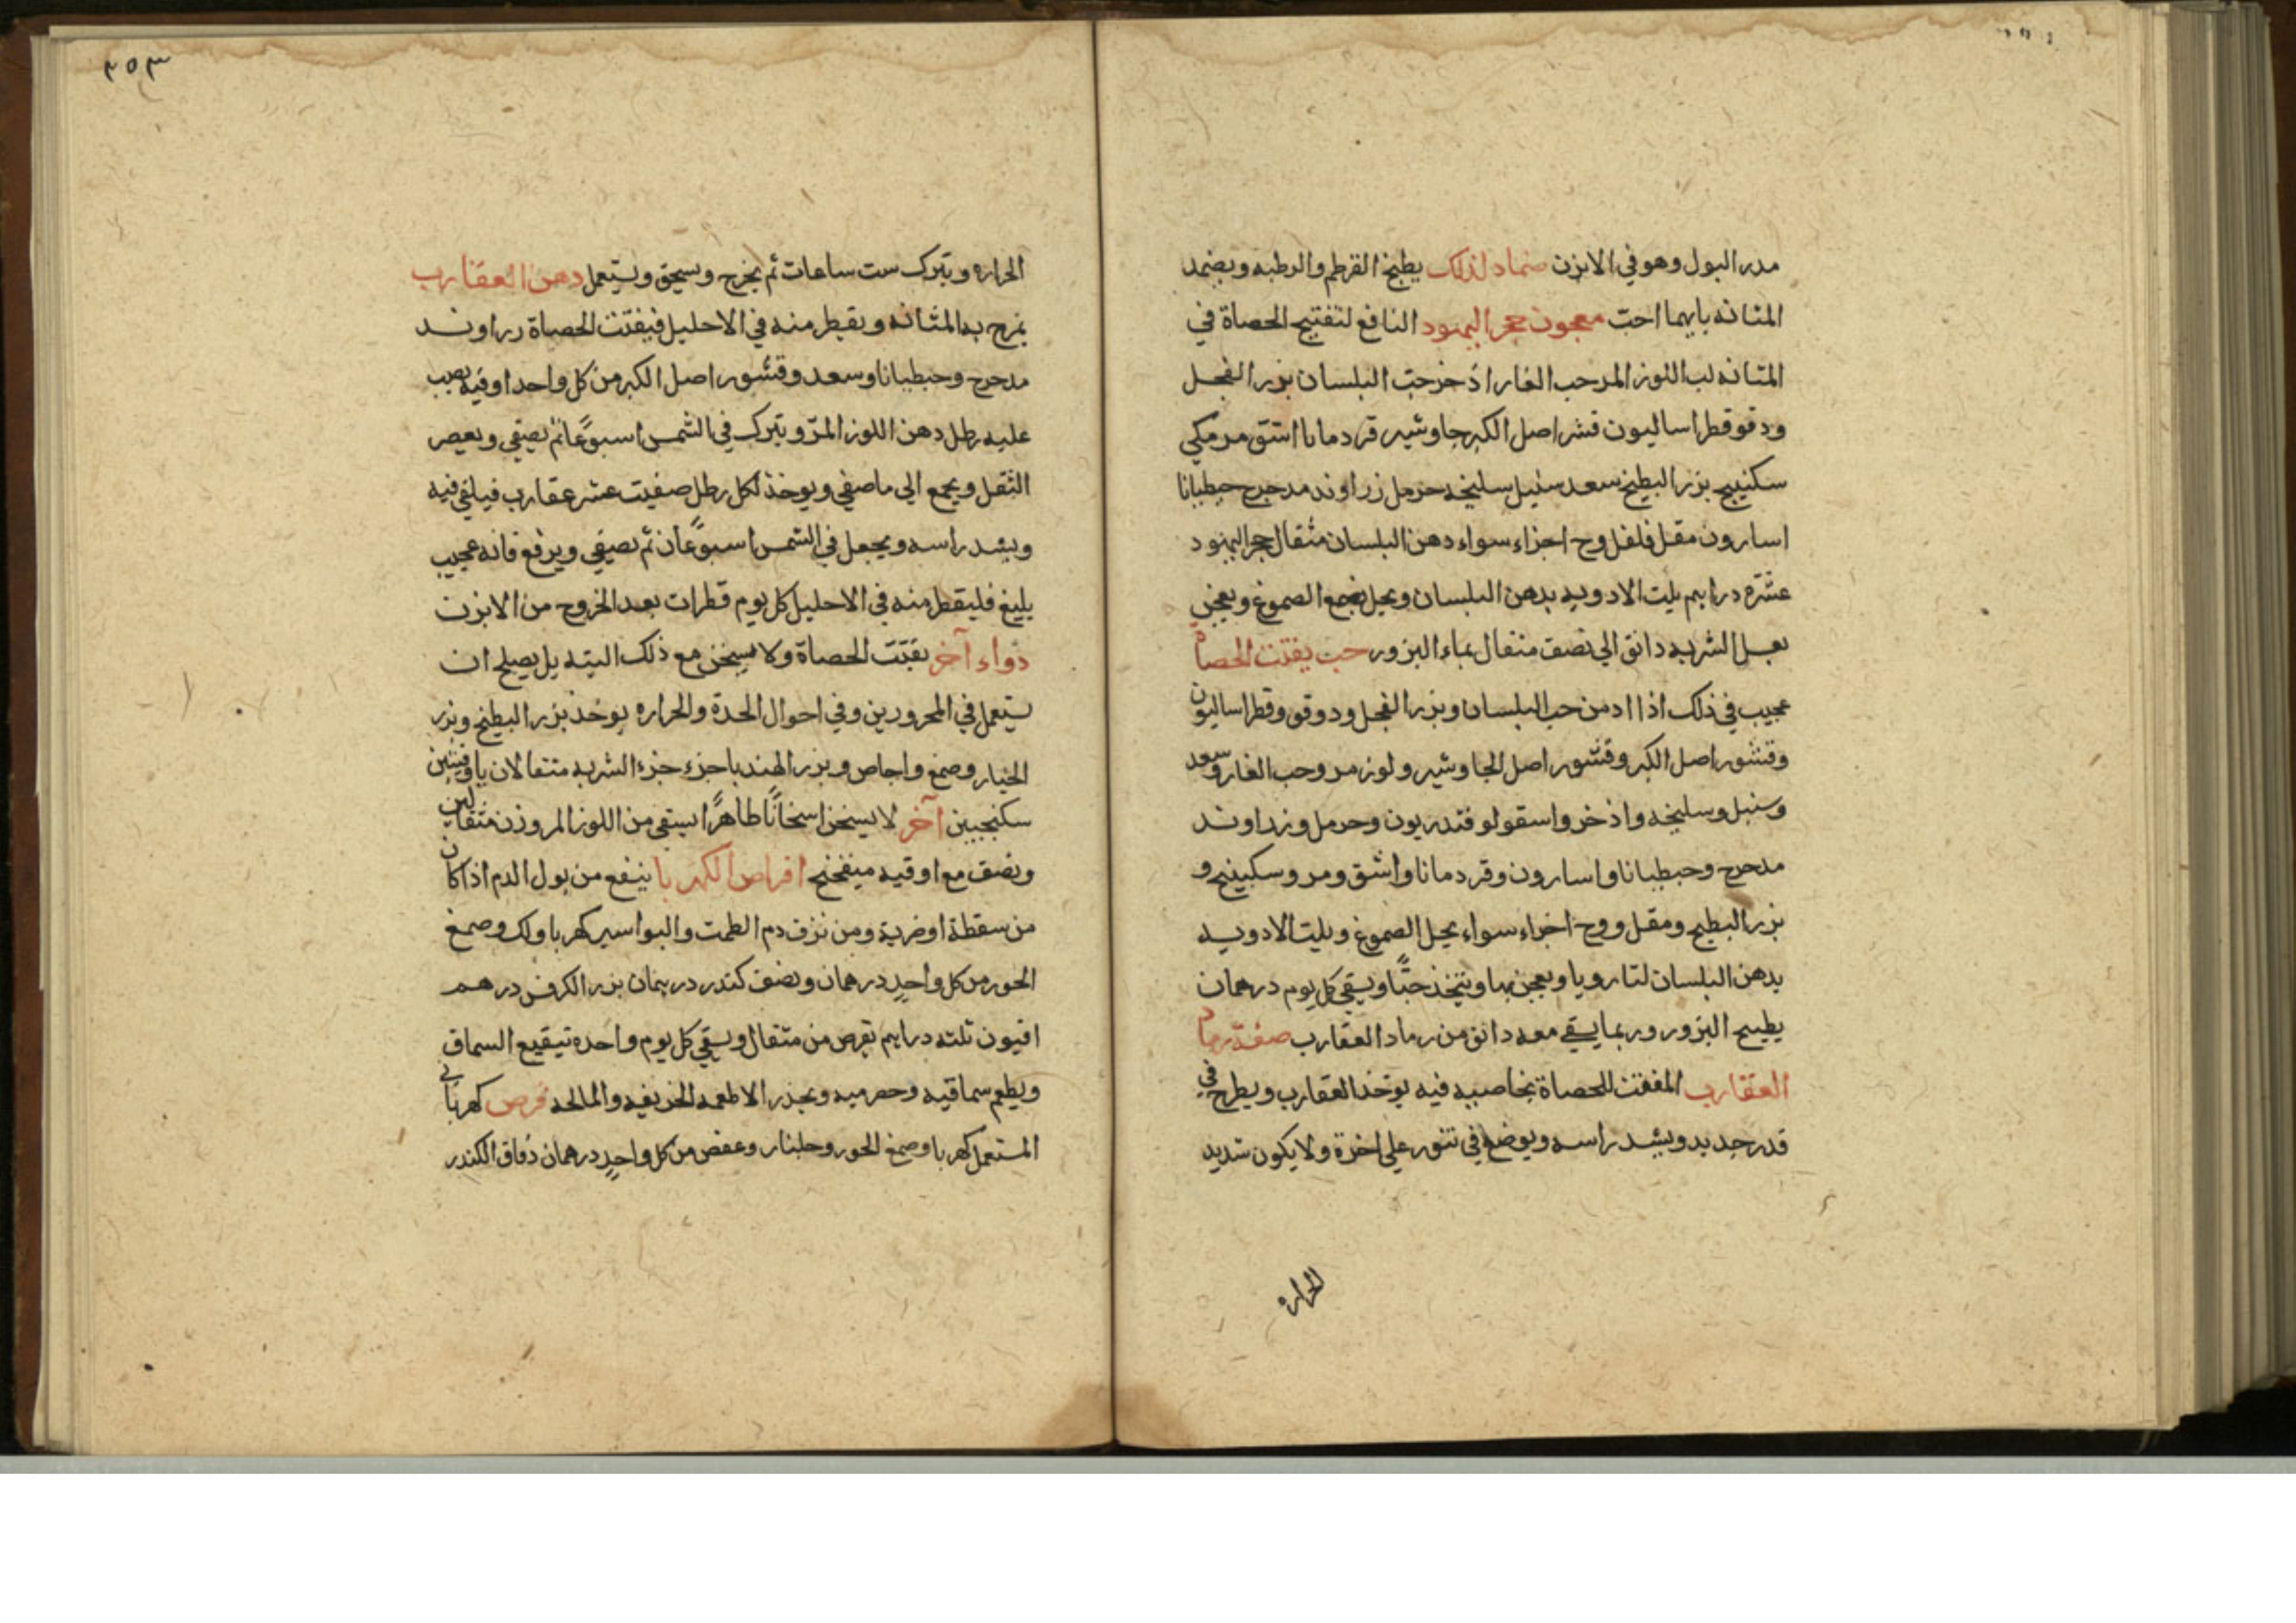 مدر البول وهو في الابزن ضماد لذلك يطبخ القرطم والرطبه ويضمد
المثانه بايهما احبّ معجون حجر اليهود النافع لتفتيح الحصاة في
المثانه لب اللوز المر حب الغار اذخر حبّ البلسان بزر الفجل
ودقو قطراساليون قشر اصل الكبر جاوشير قردمانا اشق مر مكي
سكنبيج بزر البطيخ سعد سنبل سليخه حرمل زراوند مدحرج جنطيانا
اسارون مقل فلفل وج اجزاء سواء دهن البلسان مثقال حجر اليهود
عشره دراهم يلت الادويه بدهن البلسان ويحل بجمع الصموغ ويعجن
بعسل الشربه دانق الى نصف مثقال بماء البزور حب يفتت الحصاة
عجيب في ذلك اذا ادمن حب البلسان وبزر الفجل ودوقو وقطراساليون
وقشور اصل الكبر وقشور اصل الجاوشير ولوز مر وحب الغار وسعد
وسنبل وسليخه واذخر واسقولوفندريون وحرمل وزراوند
مدحرج وجنطيانا واسارون وقردمانا واشق ومر وسكبينج و
بزر البطيخ ومقل ووج اجزاء سواء يحل الصموغ ويلت الادويه
بدهن البلسان لتا رويا ويعجن بها ويتخذ حبًّا ويسقى كل يوم درهمان
بطبيخ البزور وربما يسقى معه دانق من رماد العقارب صفة رماد
العقارب المفتت للحصاة بخاصيه فيه يوخذ العقارب ويطرح في
قدر جديد ويشد راسه ويوضع في تنور على اخرة ولا يكون شديد
الحراره
٣٥٣
الحراره ويترك ست ساعات ثم يخرج ويسحق ويستعمل دهن العقارب
يمرخ به المثانه ويقطر منه في الاحليل فيفتت الحصاة زراوند
مدحرج وجنطيانا وسعد وقشور اصل الكبر من كل واحد اوقيه يصب
عليه رطل دهن اللوز المرّ ويترك في الشمس اسبوعًا ثم يصفى ويعصر
الثفل ويجمع الى ما صفى ويوخذ لكل رطل صفيت عشر عقارب فيلقى فيه
ويشد راسه ويجعل في الشمس اسبوعًان ثم يصفى ويرفع فانه عجيب
بليغ فليقطر منه في الاحليل كل يوم قطرات بعد الخروج من الابزن
دواء آخر يفتت الحصاة ولا يسخن مع ذلك البته بل يصلح ان
يستعمل في المحرورين وفي احوال الحدة والحراره يوخذ بزر البطيخ وبزر
الخيار وصمغ واجاص وبزر الهندبا جزء جزء الشربه مثقالان باوقيتين
سكنجبين آخر لا يسخن اسخانًا ظاهرًا يسقى من اللوز المر وزن مثقالين
ونصف مع اوقيه ميفختج اقراص الكهربا ينفع من بول الدم اذا كان
من سقطة او ضربة ومن نزف دم الطمث والبواسير كهربا ولك وصمغ
الجوز من كل واحدٍ درهمان ونصف كندر درهمان بزر الكرفس درهم
افيون ثلثه دراهم تقرص من مثقال ويسقى كل يوم واحده بنقيع السماق
ويطعم سماقيه وحصرميه ويحذر الاطعمه الحريفيه والمالحه قرص كهربائى
المستعمل كهربا وصمغ الجوز وجلنار وعفص من كل واحدٍ درهمان دقاق الكندر